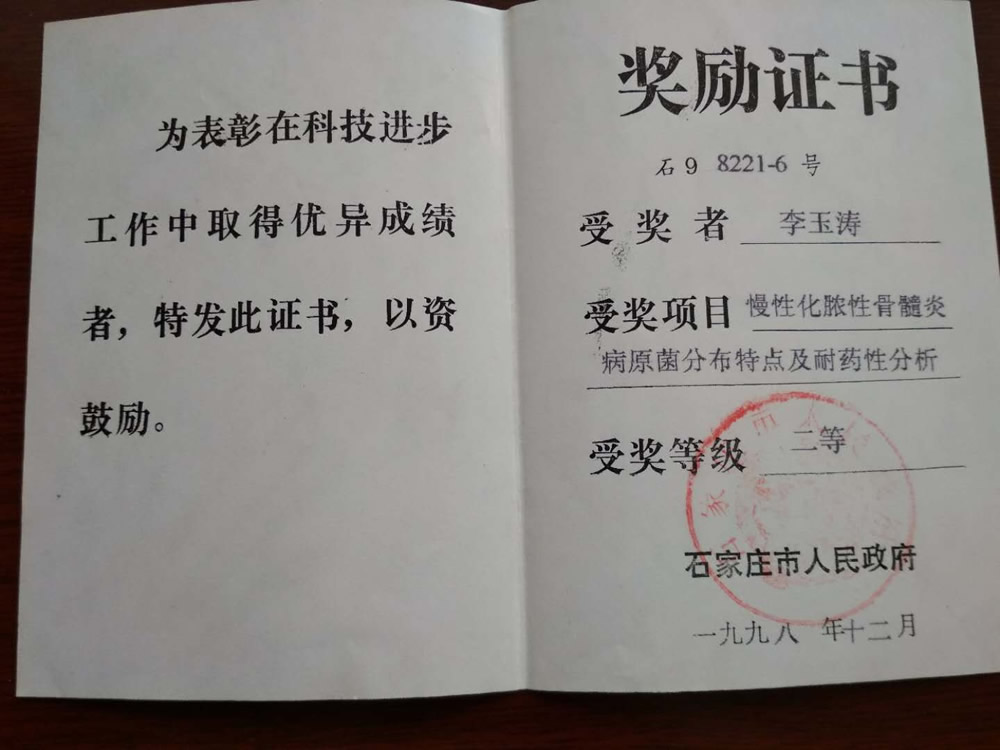 为表彰在科技进步
工作中取得优异成绩
者，特发此证书，以资
鼓励。
奖励证书
石9 8221-6 号
受奖者 李玉涛
受奖项目 慢性化脓性骨髓炎
病原菌分布特点及耐药性分析
受奖等级 二等
石家庄市人民政府
一九九八 年十二月